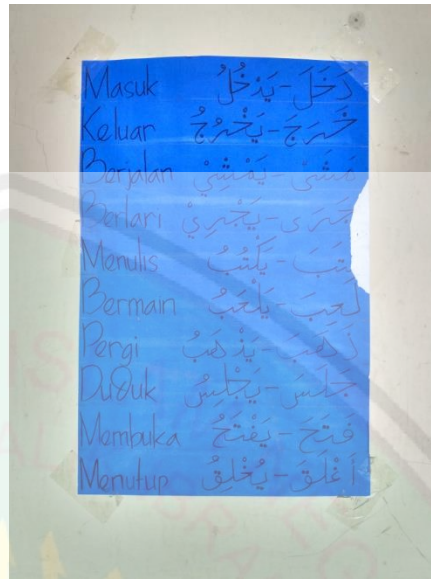 Masuk دَخَلَ - يَدْخُلُ
Keluar خَرَجَ - يَخْرُجُ
Berjalan مَشَى - يَمْشِيْ
Berlari جَرَى - يَجْرِيْ
Menulis كَتَبَ - يَكْتُبُ
Bermain لَعِبَ - يَلْعَبُ
Pergi ذَهَبَ - يَذْهَبُ
Duduk جَلَسَ - يَجْلِسُ
Membuka فَتَحَ - يَفْتَحُ
Menutup أَغْلَقَ - يُغْلِقُ